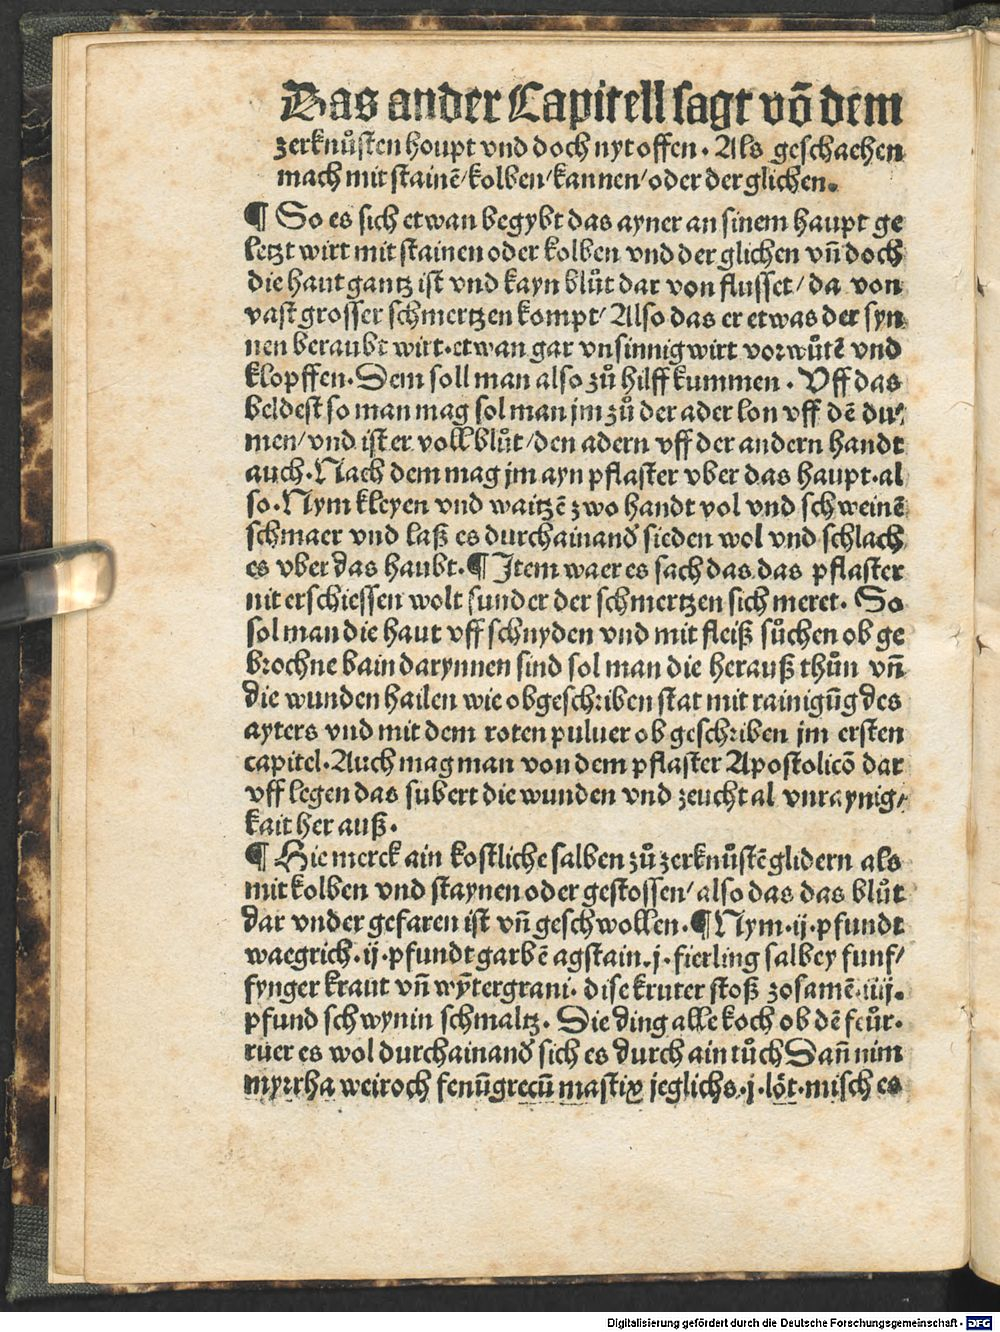 Das ander Capitell sagt võ dem
zerknuͦsten houpt vnd doch nyt offen. Als geschaehen
mach mit stainẽ/kolben/kannen/oder der glichen.
¶ So es sich etwan begybt das ayner an sinem haupt ge
letzt wirt mit stainen oder kolben vnd der glichen vñ doch
die haut gantz ist vnd kayn bluͦt dar von flusset/ da von
vast grosser schmertzen kompt/ Also das er etwas der syn
nen beraubt wirt. etwan gar vnsinnig wirt vor wuͦtẽ vnd
klopffen. Dem soll man also zuͦ hilff kummen. Vff das
beldest so man mag sol man jm zuͦ der ader lon vff dẽ du
men/ vnd ist er voll bluͦt/ den adern vff der andern handt
auch. Nach dem mag jm ayn pflaster vber das haupt. al
so. Nym kleyen vnd waitzẽ zwo handt vol vnd schweinẽ
schmaer vnd laß es durchainand̛ sieden wol vnd schlach
es vber das haubt. ¶ Item waer es sach das das pflaster
nit erschiessen wolt sunder der schmertzen sich meret. So
sol man die haut vff schnyden vnd mit fleiß suͦchen ob ge
brochne bain darynnen sind sol man die herauß thuͦn vñ
die wunden hailen wie obgeschriben stat mit rainigũg des
ayters vnd mit dem roten puluer ob geschriben jm ersten
capitel. Auch mag man von dem pflaster Apostolicõ dar
vff legen das subert die wunden vnd zeucht al vnraynig/
kait her auß.
¶ Hie merck ain kostliche salben zuͦ zerknuͦstẽ glidern als
mit kolben vnd staynen oder gestossen/ also das das bluͦt
dar vnder gefaren ist vñ geschwollen. ¶ Nym. ij. pfundt
waegrich. ij. pfundt garbẽ agstain. j. fierling salbey funf/
fynger kraut vñ wỹtergrani. dise kruter stoß zosamẽ. iiij.
pfund schwynin schmaltz. Die ding alle koch ob dẽ feuͦr.
ruer es wol durchainand̛ sich es durch ain tuͦch Dañ nim
myrrha weiroch fenũgrecũ mastix jeglichs. j. löt. misch es
Digitalisierung gefördert durch die Deutsche Forschungsgemeinschaft - DFG